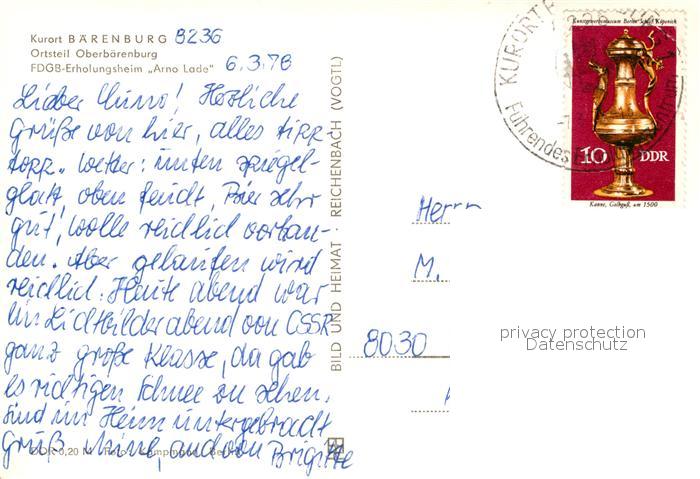 Kurort BÄRENBURG 8236
Ortsteil Oberbärenburg
FDGB-Erholungsheim „Arno Lade“ 6.3.78
Lieber ! Herzliche
Grüße von hier, alles tipp
topp. Wetter: unten spiegel-
glatt, oben feucht, Bier sehr
gut, Wolle reichlich vorhan-
den. Aber gelaufen wird
reichlich. Heute abend war
ein Lichtbilderabend von CSSR
ganz große Klasse, da gab
es richtigen Schnee zu sehen.
Sind im Heim untergebracht
Gruß auch von Brigitte
DDR 0,20 M Foto: Kampmann, Be
BILD UND HEIMAT REICHENBACH (VOGTL)
KURORT
Führendes
Kunstgewerbemuseum Berlin Schloß Köpenick
10 DDR
Kanne, Gelbguß, um 1500
Herrn
M.
8030
privacy protection
Datenschutz